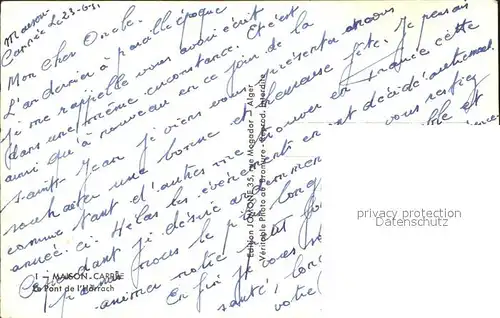 Maison-
Carrée le 23-6-61
Mon cher Oncle.
L'an dernier à pareille époque
je me rappelle vous avoir écrit
dans une même circonstance. Et c'est
ainsi qu'à nouveau en ce jour de la
Saint Jean je viens vous présenter mes
souhaiter une bonne et heureuse fête. Je pensais
comme tant d'autres me trouver en France cette
année-ci. Hélas les événements en ont décidé autrement
Cependant je désire ardemment vous restiez
parmi nous le plus long
animer notre petit
En fin je vous
santé, lon
votre
Edition JOMONE 35, rue Mogador - Alger
Véritable Photo au Bromure - Reprod. Interdite
1 - MAISON-CARRÉE
Le Pont de l'Harrach
privacy protection
DatenSchutz